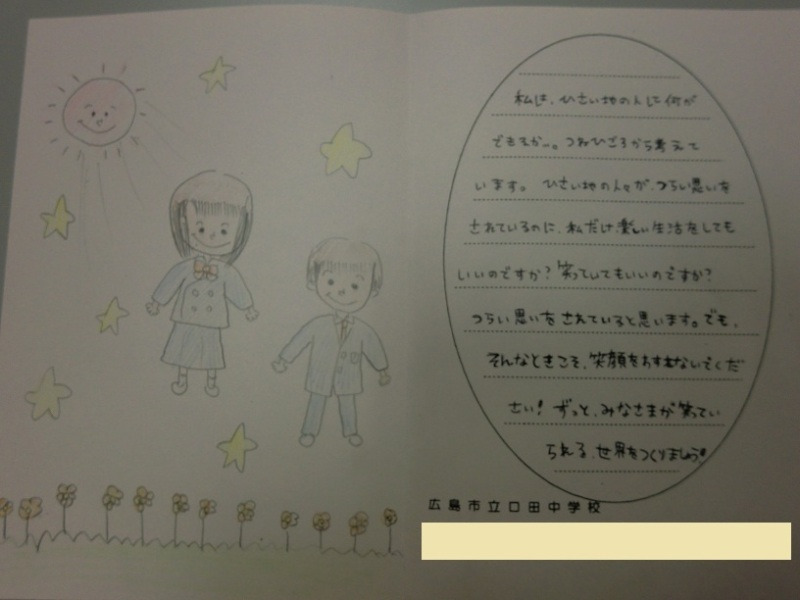 私は、ひさい地の人に何が
できるか…。つねひごろから考えて
います。 ひさい地の人々が、つらい思いを
されているのに、私だけ、楽しい生活をしても
いいのですか？笑っていてもいいのですか？
つらい思いをされていると思います。でも、
そんなときこそ、笑顔をわすれないでくだ
さい！ ずっと、みなさまが笑ってい
られる、世界をつくりましょう。
広島市立口田中学校